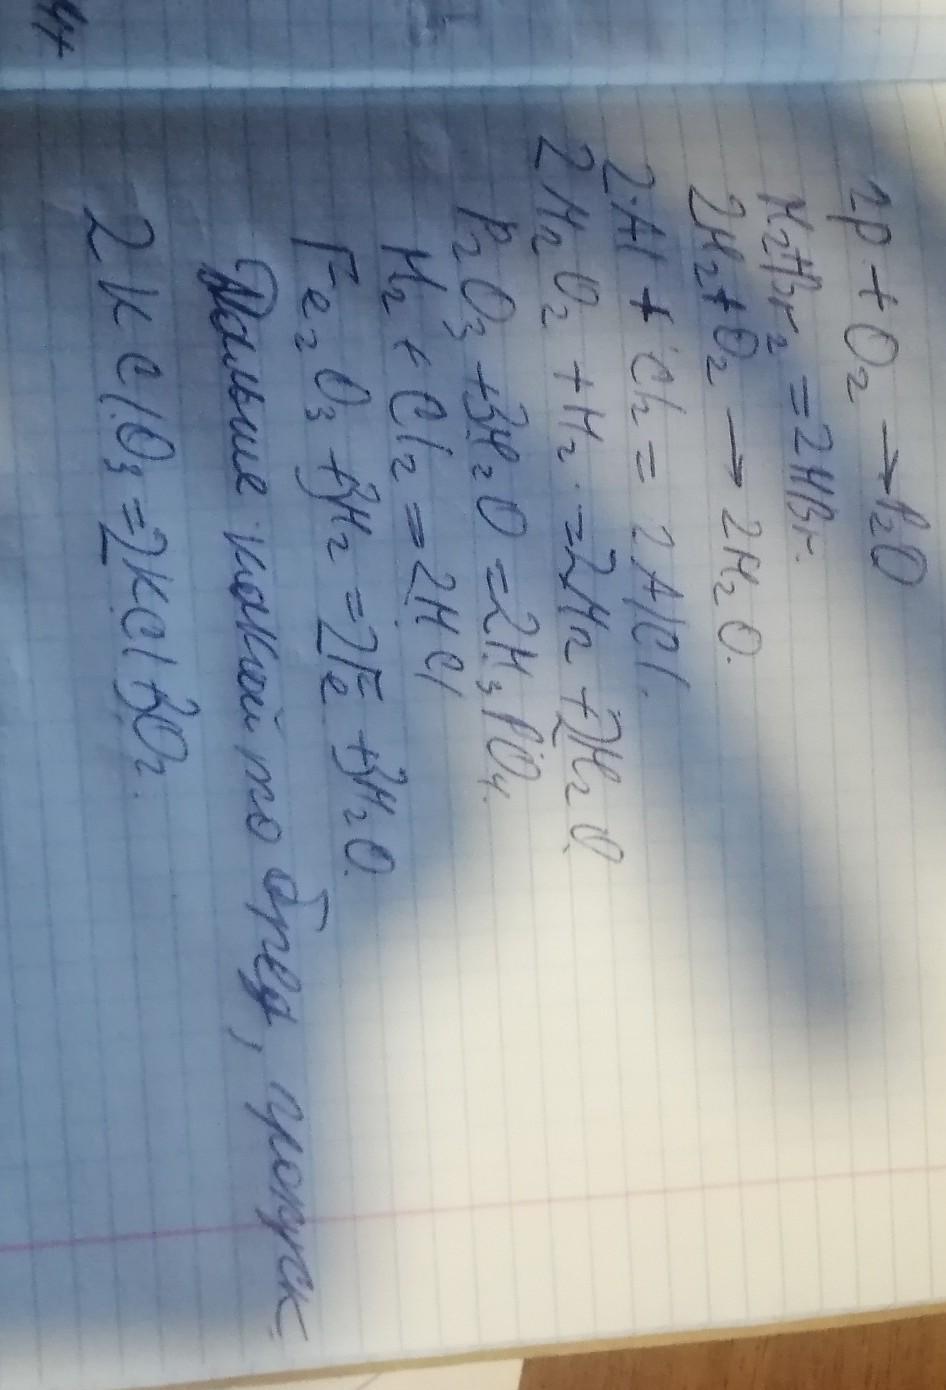 2P + O₂ → P₂O
H₂ + Br₂ = 2HBr.
2H₂ + O₂ → 2H₂O.
2Al + Cl₂ = 2AlCl.
2H₂O₂ + H₂ = 2H₂ + 2H₂O.
P₂O₃ + 3H₂O = 2H₃PO₄.
H₂ + Cl₂ = 2HCl
Fe₂O₃ + 3H₂ = 2Fe + 3H₂O.
Дальше какой то бред, пропуск.
2KClO₃ = 2KCl + 3O₂.